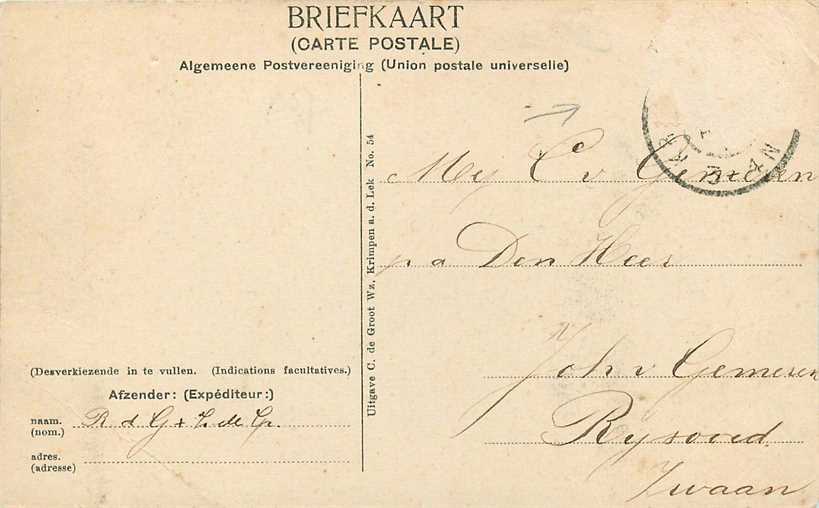 BRIEFKAART
(CARTE POSTALE)
Algemeene Postvereeniging (Union postale universelle)
Mej C v Gemeren
p a Den Heer
Joh v Gemeren
Rysoord
Zwaan
Uitgave C. de Groot Wz. Krimpen a. d. Lek No. 54
(Desverkiezende in te vullen. (Indications facultatives.)
Afzender: (Expéditeur:)
naam. R d G + L. de Gr.
(nom.)
adres.
(adresse)